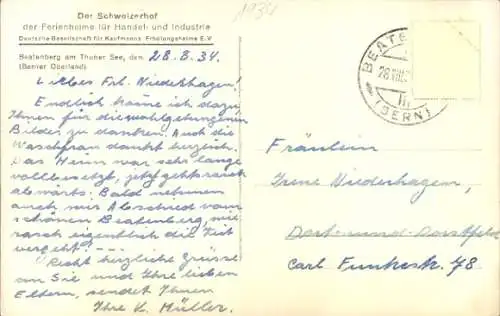 1934
Der Schweizerhof
der Ferienheime für Handel und Industrie
Deutsche Gesellschaft für Kaufmanns Erholungsheime E.V.
Beatenberg am Thuner See, den 28.8.34.
(Berner Oberland)
Liebes Frl. Niederhagen!
Endlich komme ich dazu
Ihnen für die wohlgelungenen
Bilder zu danken. Auch die
Waschfrau dankt herzlich.
Das Heim war sehr lange
vollbesetzt, jetzt geht's rasch
abwärts. Bald nehmen
auch wir Abschied vom
schönen Beatenberg, wie
rasch eigentlich die Zeit
vergeht! ---
Recht herzliche Grüsse
an Sie und Ihre lieben
Eltern, sendet Ihnen
Ihre K. Müller.
BEATE
28.VIII.
(BERN)
Fräulein
Irene Niederhagen,
Dortmund-Dorstfeld
Carl Funkestr. 78